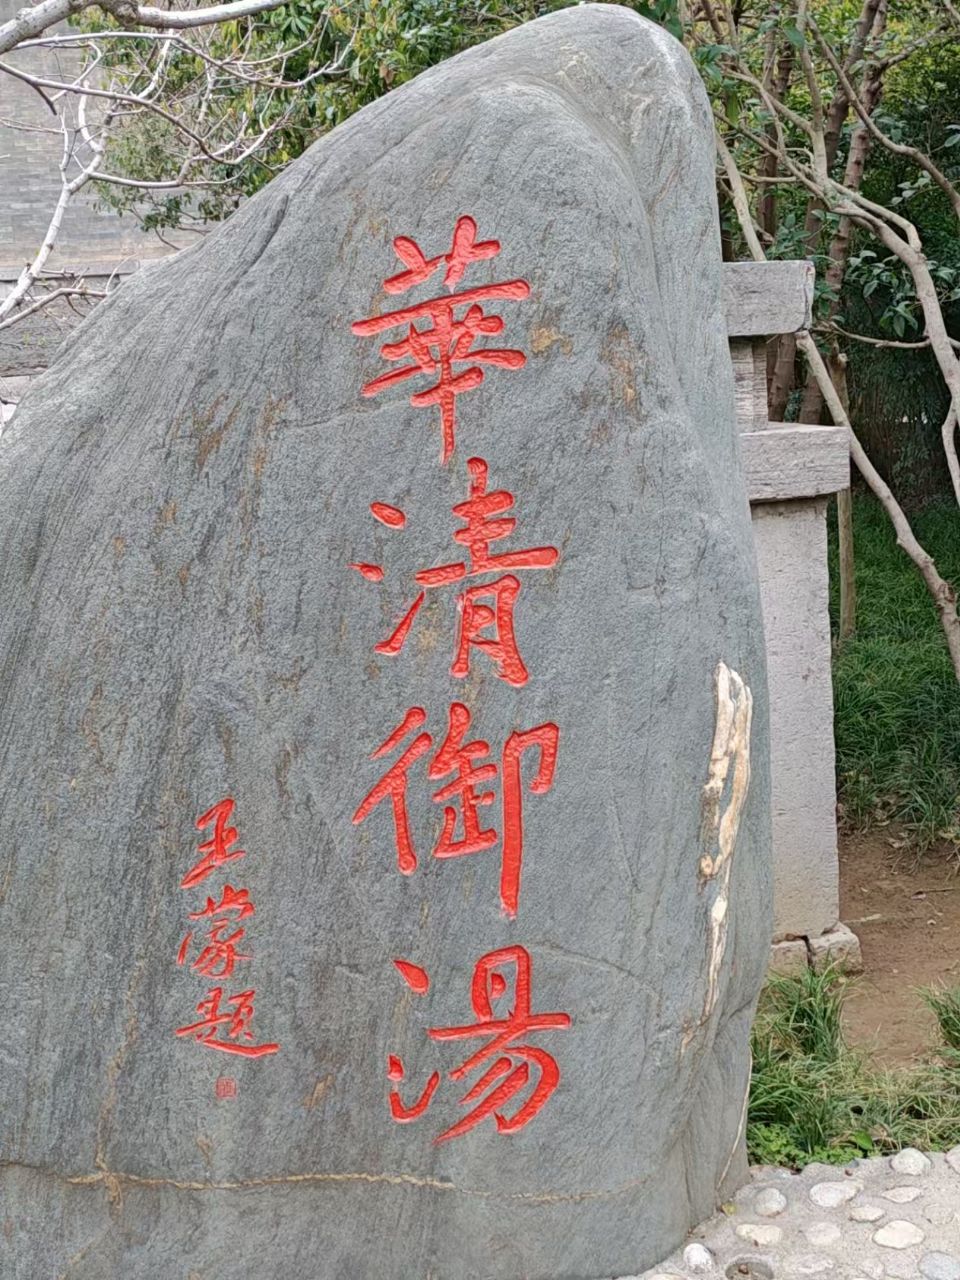 華清御湯
王蒙題